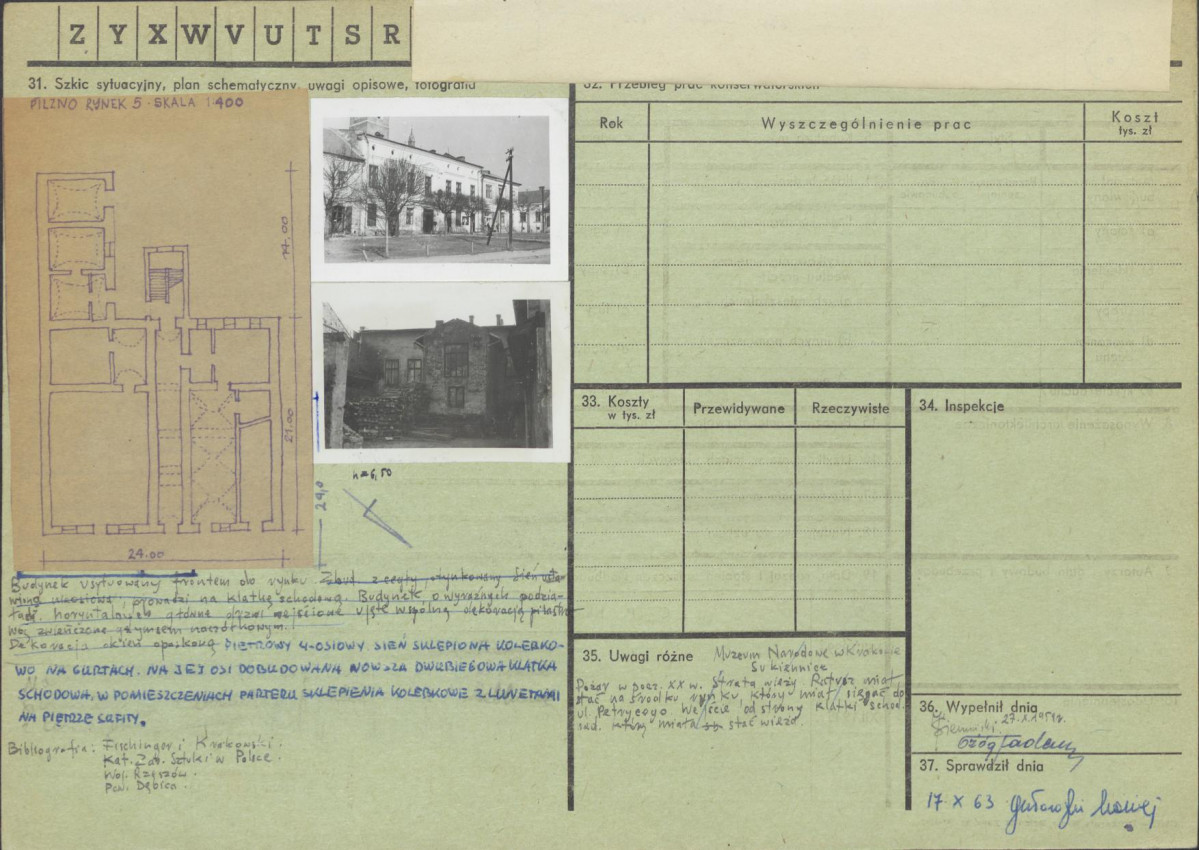 Z Y X W V U T S R
31. Szkic sytuacyjny, plan schematyczny, uwagi opisowe, fotografia
PILZNO RYNEK 5 - SKALA 1:400
14.00
21.00
24.00
24,0
h=6,50
Budynek usytuowany frontem do rynku. Zbud. z cegły otynkowany Sień
prowadzi na klatkę schodową. Budynek, o wyraźnych podzia-
łach horyzontalnych główne drzwi wejściowe ujęte wspólną dekoracją pilastro-
wą zwieńczone gzymsem
Dekoracja okien opaskowa PIĘTROWY 4-OSIOWY. SIEŃ SKLEPIONA KOLEBKO-
WO NA GURTACH. NA JEJ OSI DOBUDOWANA NOWSZA DWUBIEGOWA KLATKA
SCHODOWA. W POMIESZCZENIACH PARTERU SKLEPIENIA KOLEBKOWE Z LUNETAMI
NA PIĘTRZE SUFITY.
Bibliografia: Fischinger i Krakowski.
Kat. Zab. Sztuki w Polsce.
Woj. Rzeszów.
Pow. Dębica.
32. Przebieg prac konserwatorskich
Rok
Wyszczególnienie prac
Koszt
tys. zł
33. Koszty
w tys. zł
Przewidywane
Rzeczywiste
34. Inspekcje
35. Uwagi różne Muzeum Narodowe w Krakowie
Sukiennice
Pożar w pocz. XX w. strata wieży. Ratusz miał
stać na środku rynku, który miał sięgać do
ul. Petrycego. Wejście od strony klatki schod.
miała stać wieża.
36. Wypełnił dnia
27.X.1959r.
37. Sprawdził dnia
17 X 63